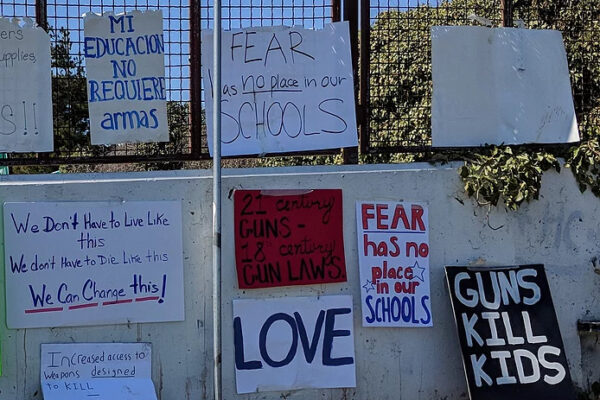 ers
upplies
S!!
MI
EDUCACION
NO
REQUIERE
armas
FEAR
has no place in our
SCHOOLS
We Don't Have to Live Like
this
We don't Have to Die Like this
We Can Change this!
21 century
GUNS -
18 century
GUN LAWS.
FEAR
has no
place
in our
SCHOOLS
LOVE
GUNS
KILL
KIDS
INCREASED access to
Weapons designed
to KILL